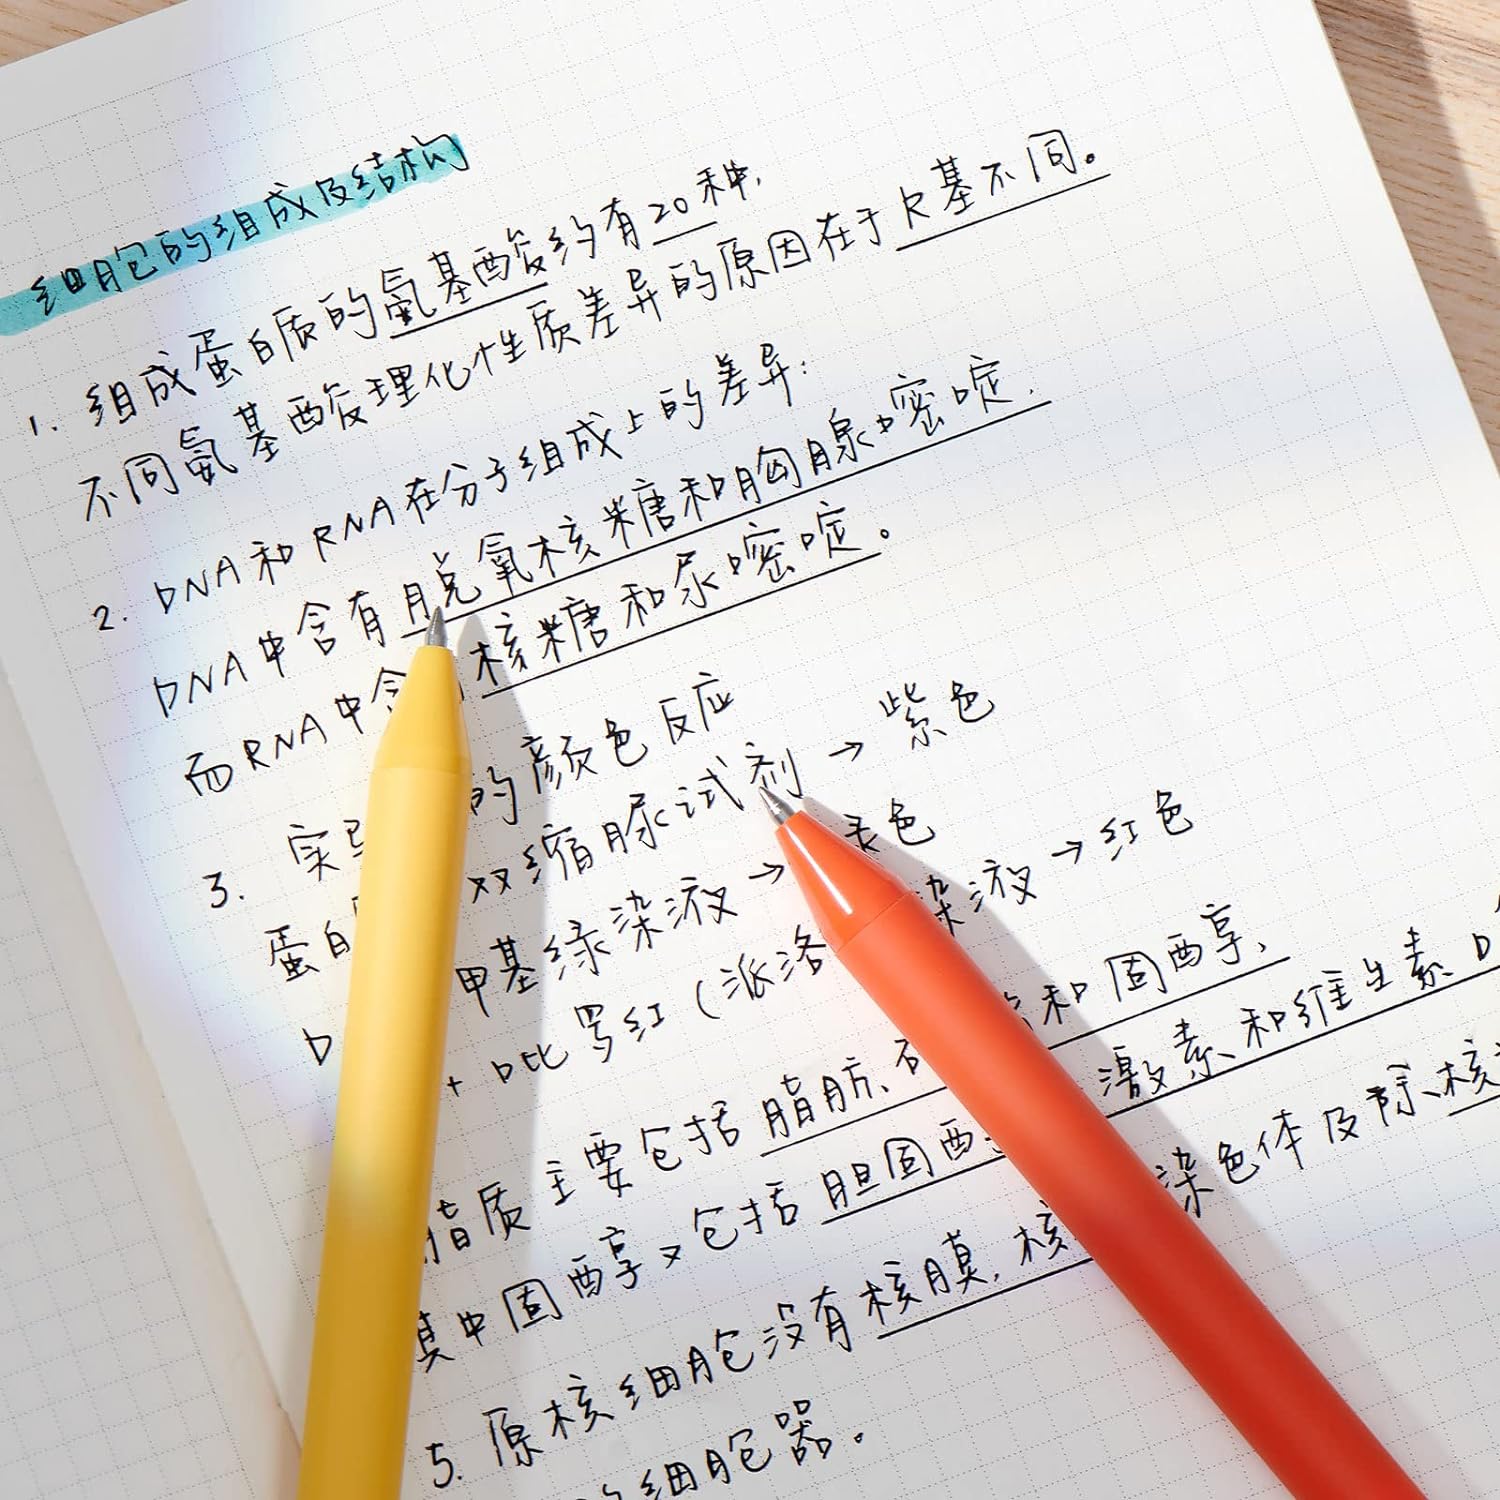 细胞的组成及结构
1. 组成蛋白质的氨基酸约有20种,
不同氨基酸理化性质差异的原因在于R基不同。
2. DNA和RNA在分子组成上的差异:
DNA中含有脱氧核糖和胸腺嘧啶.
而RNA中含 核糖和尿嘧啶。
3. 实 的颜色反应
蛋白 双缩脲试剂 → 紫色
D 甲基绿染液 → 色
+ 吡罗红(派洛 染液 → 红色
脂质主要包括脂肪、 和固醇、
其中固醇又包括胆固 激素和维生素D
5. 原核细胞没有核膜, 核 染色体及除、核
细胞器。